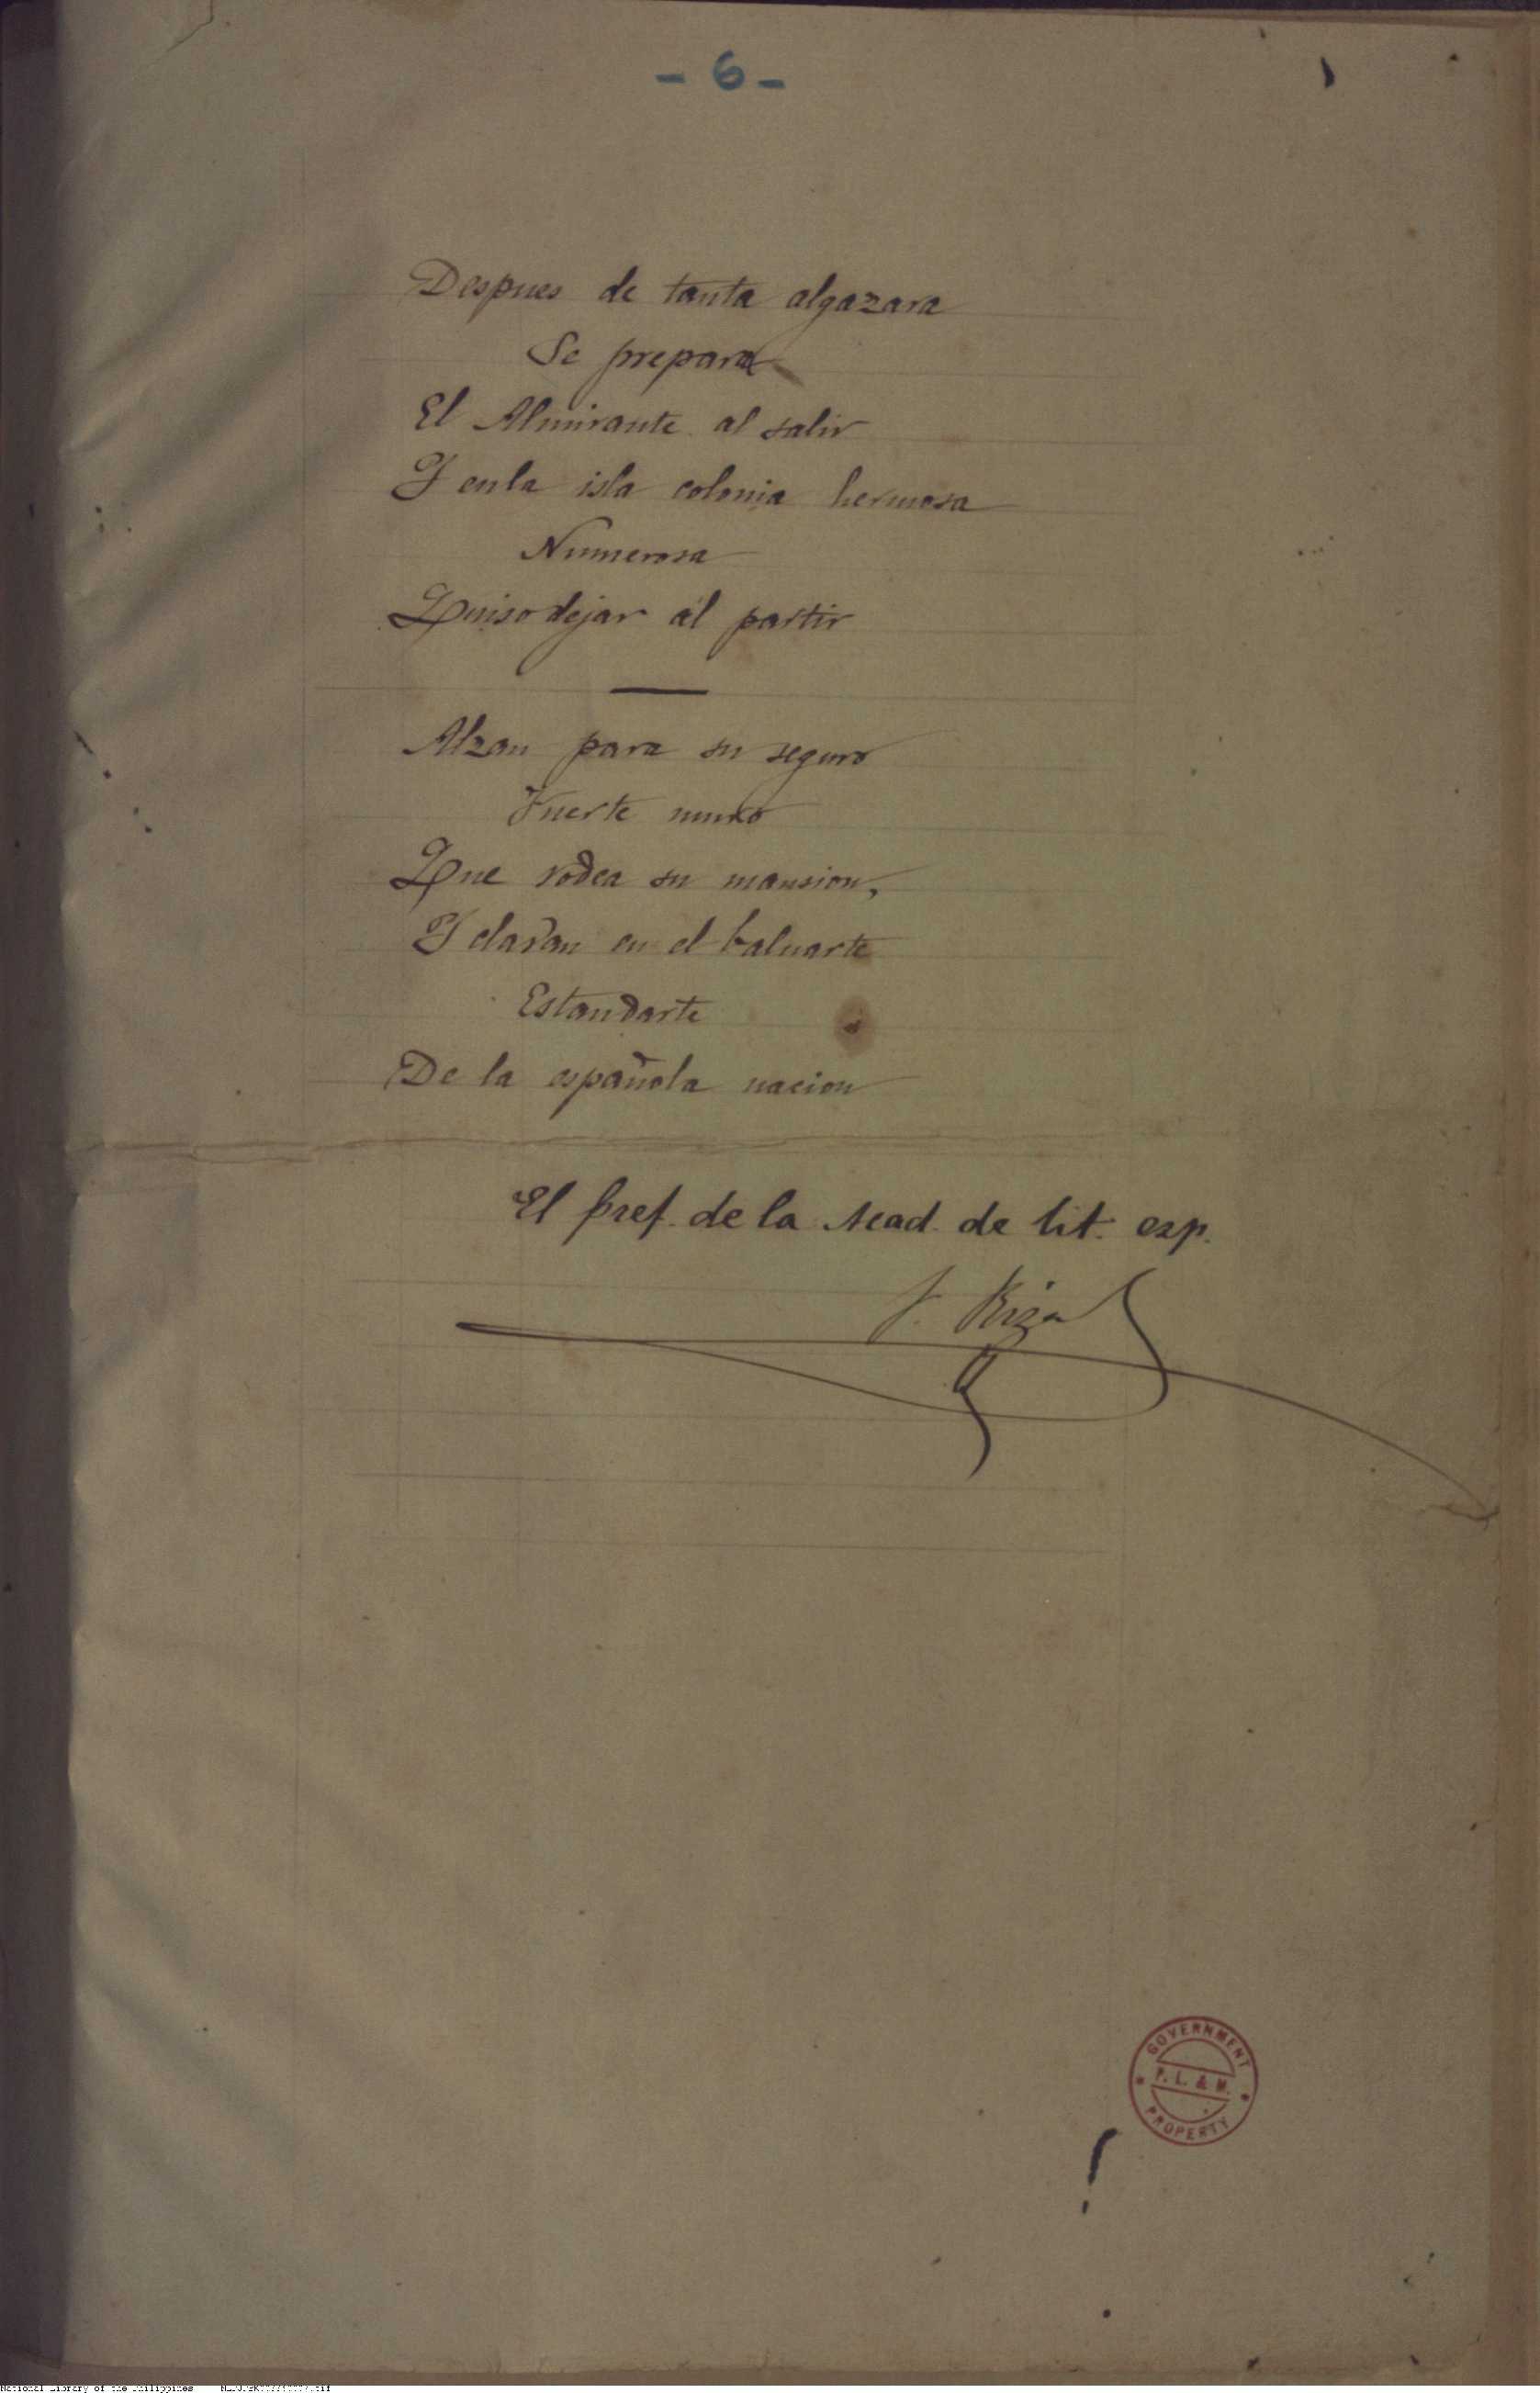 - 6 -
Despues de tanta algazara
Se prepara
El Almirante al salir
Y en la isla colonia hermosa
Numerosa
Quiso dejar al partir
Alzan para su seguro
Fuerte muro
Que rodea su mansion,
Y clavan en el baluarte
Estandarte
De la española nacion
El Pref. de la Acad. de lit. esp.
J. Rizal
GOVERNMENT
P. L. & M.
PROPERTY
National Library of the Philippines